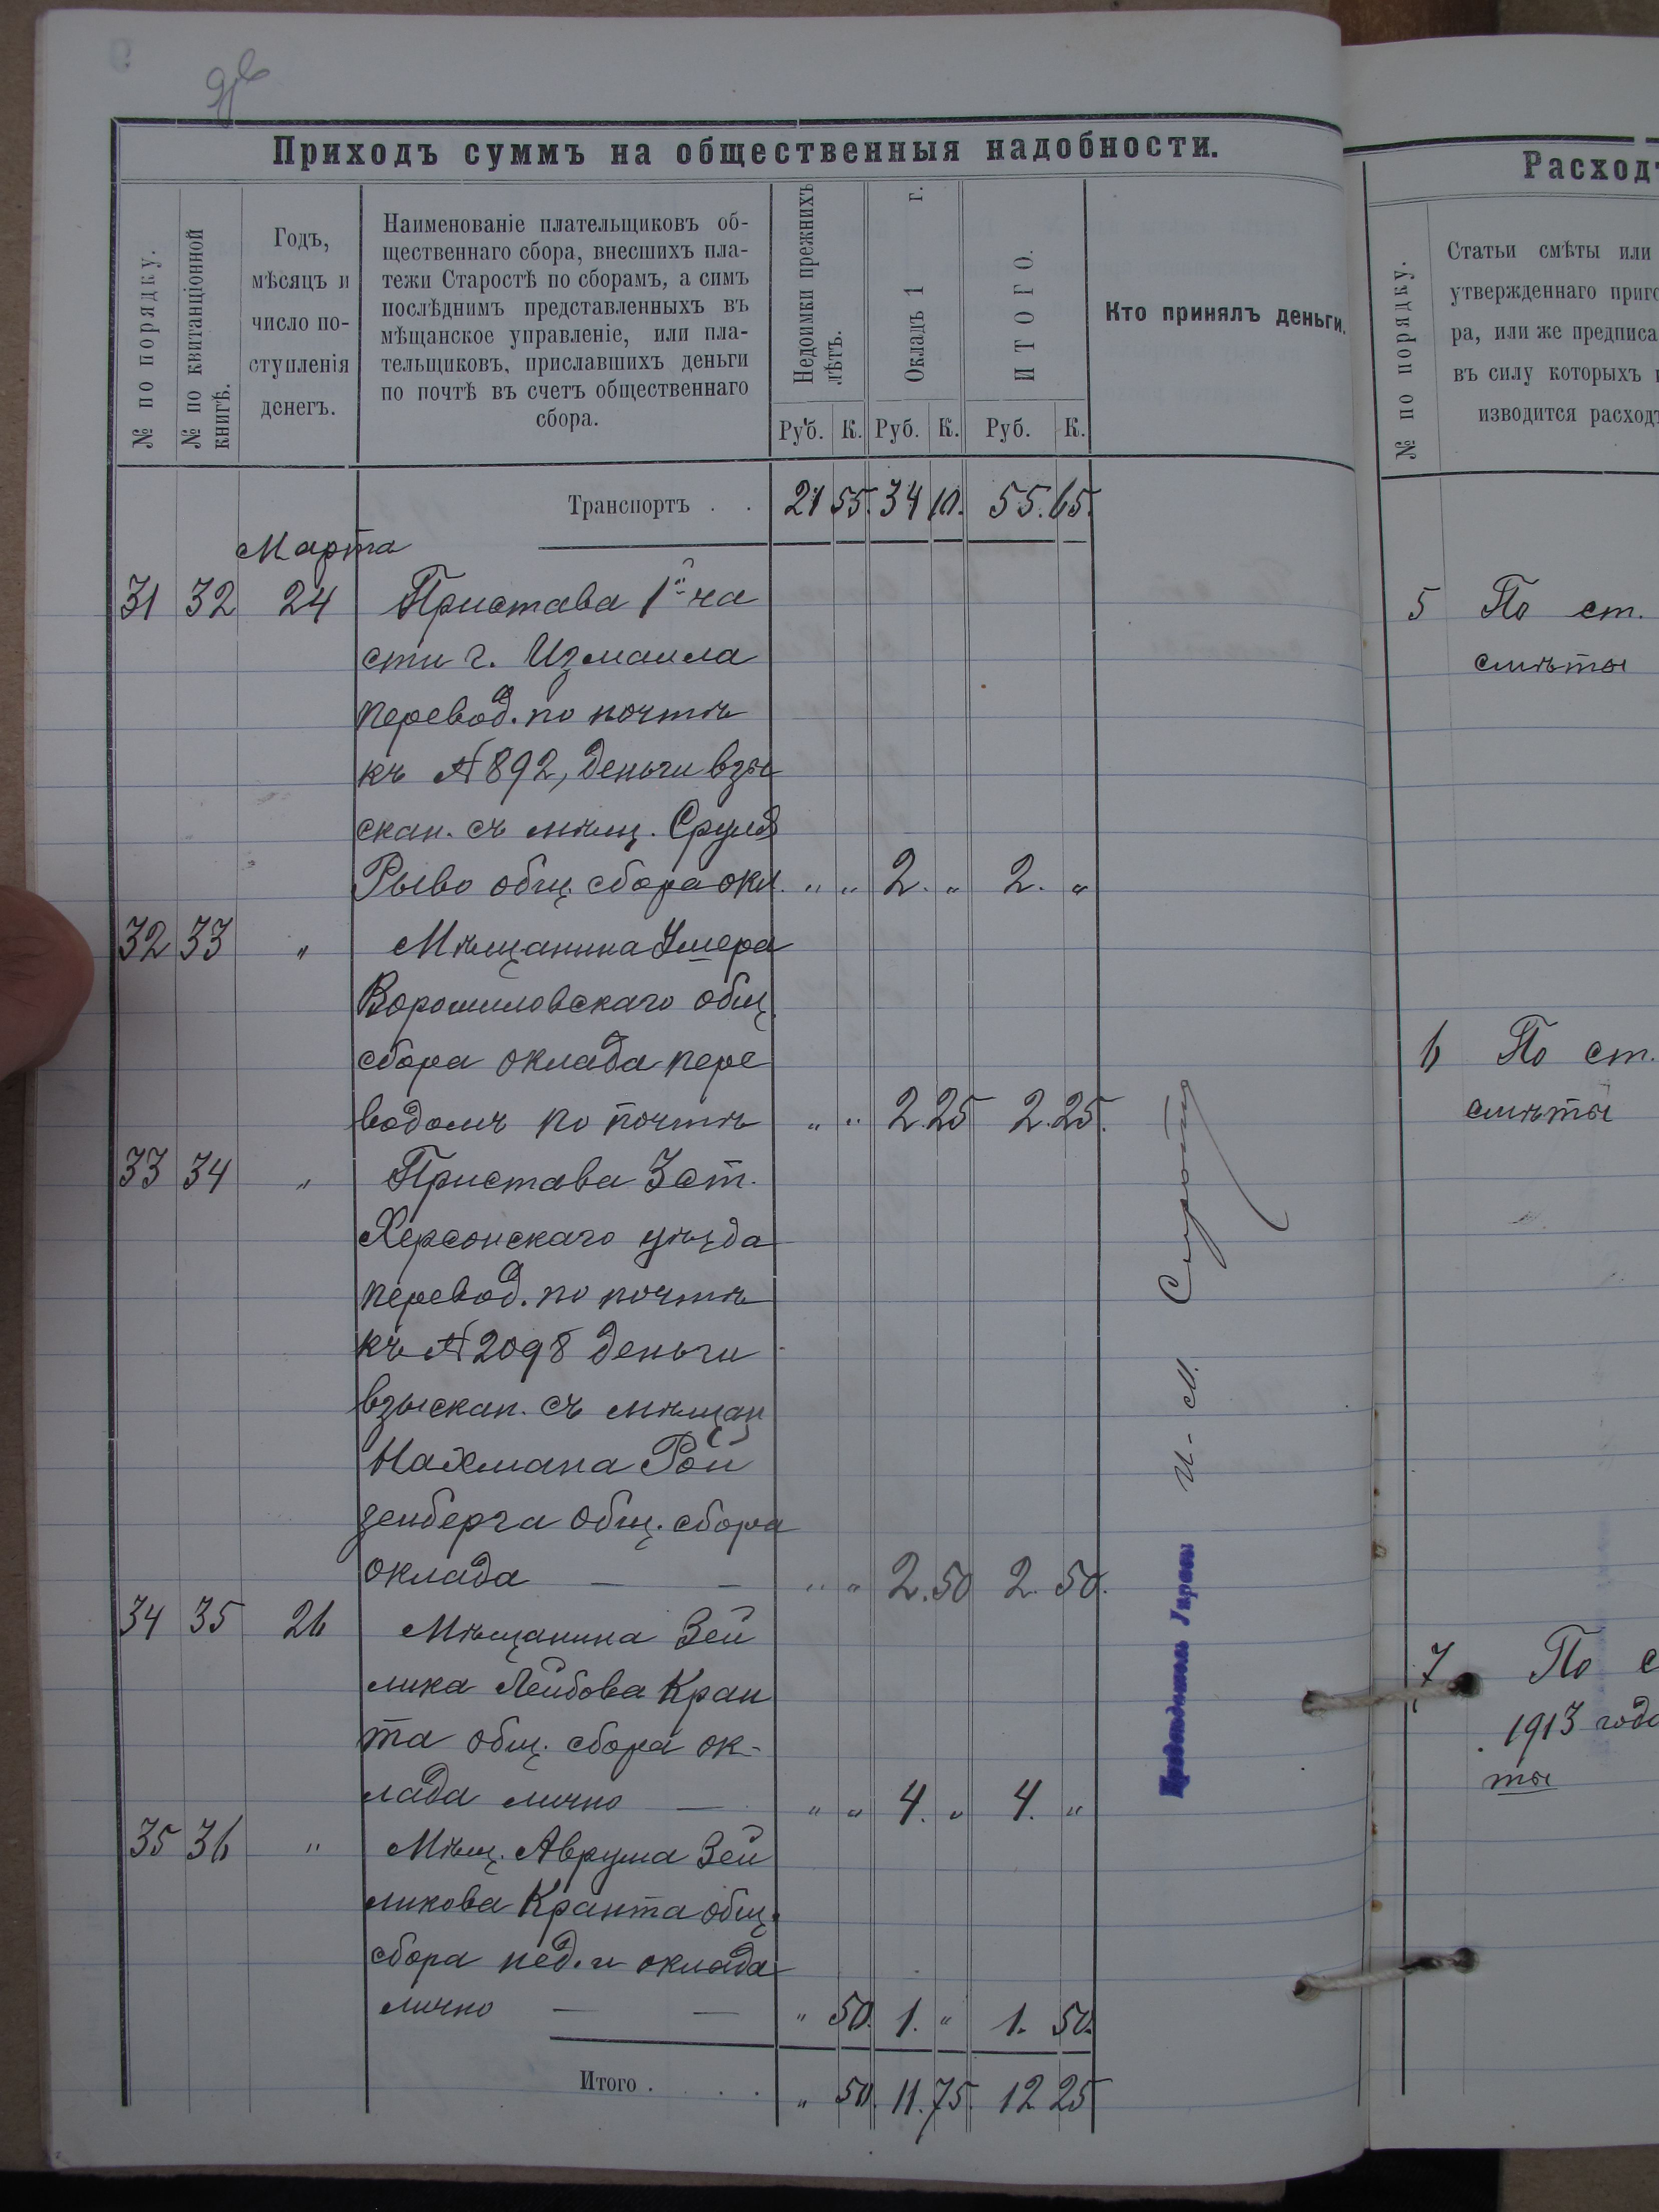 Приходъ суммъ на общественныя надобности.
№ по порядку.
№ по квитанціонной
книгѣ.
Годъ,
мѣсяцъ и
число по-
ступленія
денегъ.
Наименованіе плательщиковъ об-
щественнаго сбора, внесшихъ пла-
тежи Старостѣ по сборамъ, а симъ
послѣднимъ представленныхъ въ
мѣщанское управленіе, или пла-
тельщиковъ, приславшихъ деньги
по почтѣ въ счетъ общественнаго
сбора.
Недоимки прежнихъ
лѣтъ.
Окладъ 1 г.
ИТОГО.
Кто принялъ деньги.
Руб. К. Руб. К. Руб. К.
Транспортъ . . 21 55. 34 10. 55. 65.
Марта
31 32 24 Пристава 1й ча
сти г. Измаила
перевод. по почтѣ
къ № 892, деньги взы
скан. съ мѣщ. Сруля
Рыво общ. сбора окл. " " 2. " 2. "
32 33 " Мѣщанина Умера
Ворошиловскаго общ.
сбора оклада пере
водомъ по почтѣ " " 2. 25 2. 25.
33 34 " Пристава 3 ст.
Херсонскаго уѣзда
перевод. по почтѣ
къ № 2098 деньги
взыскан. съ мѣщан
Нахмана Рой
зенберга общ. сбора
оклада — — " " 2. 50 2. 50.
34 35 26 Мѣщанина Зей
лика Лейбова Кран
та общ. сбора ок-
лада лично — " " 4. " 4. "
35 36 " Мѣщ. Аврума Зей
ликова Кранта общ.
сбора нед. и оклада
лично — — " 50. 1. " 1. 50.
Итого . . . . " 50. 11. 75. 12 25
Предсѣдатель Управы
И. М.
Расходъ
№ по порядку.
Статьи смѣты или
утвержденнаго приго
ра, или же предписа
въ силу которыхъ
изводится расходъ
5 По ст.
смѣты
6 По ст.
смѣты
7 По с
1913 года
ты